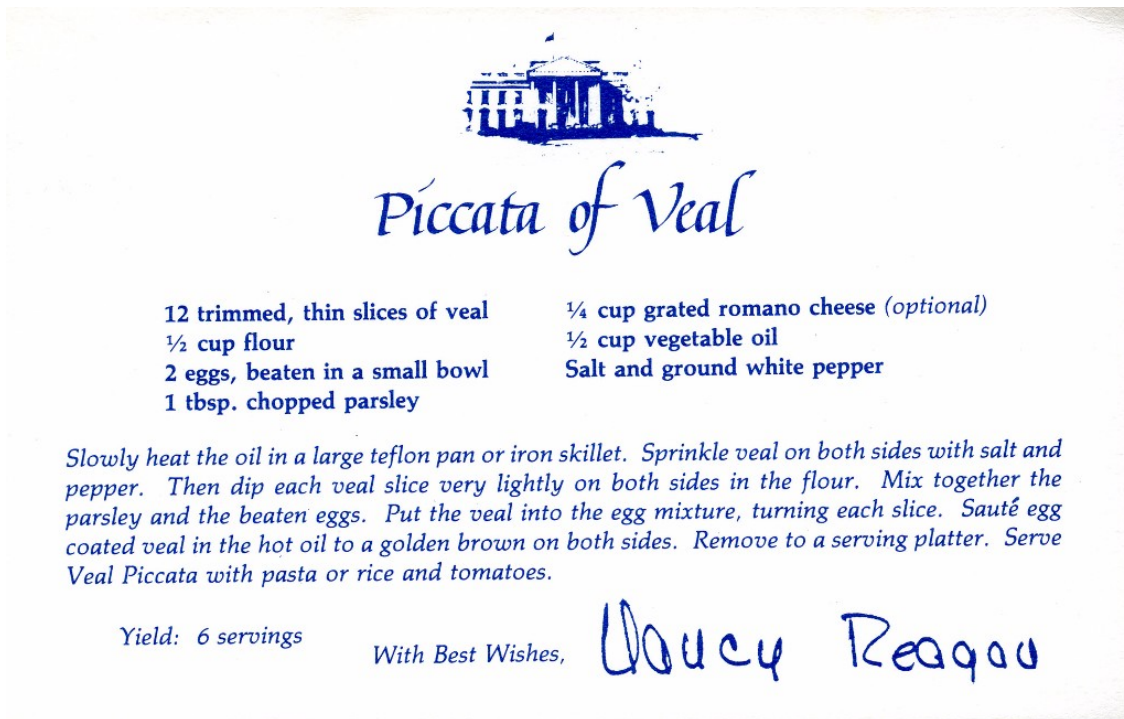 Piccata of Veal
12 trimmed, thin slices of veal
½ cup flour
2 eggs, beaten in a small bowl
1 tbsp. chopped parsley
¼ cup grated romano cheese (optional)
½ cup vegetable oil
Salt and ground white pepper
Slowly heat the oil in a large teflon pan or iron skillet. Sprinkle veal on both sides with salt and
pepper. Then dip each veal slice very lightly on both sides in the flour. Mix together the
parsley and the beaten eggs. Put the veal into the egg mixture, turning each slice. Sauté egg
coated veal in the hot oil to a golden brown on both sides. Remove to a serving platter. Serve
Veal Piccata with pasta or rice and tomatoes.
Yield: 6 servings
With Best Wishes, Nancy Reagan